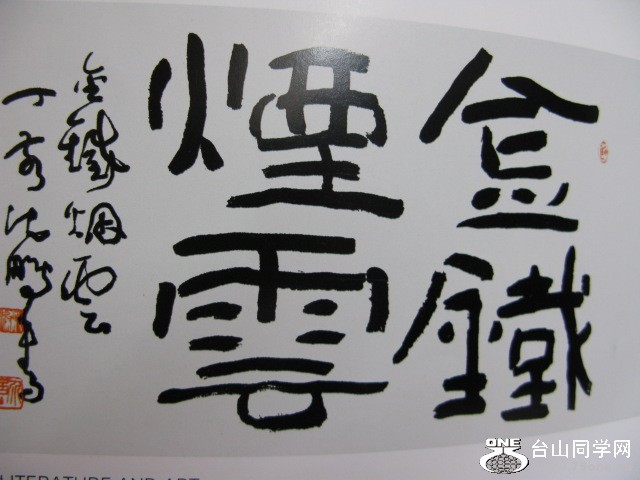 金鐵
煙雲
金鐵烟雲
丁亥沈鵬
LITERATURE AND ART
ONE
台山同学网